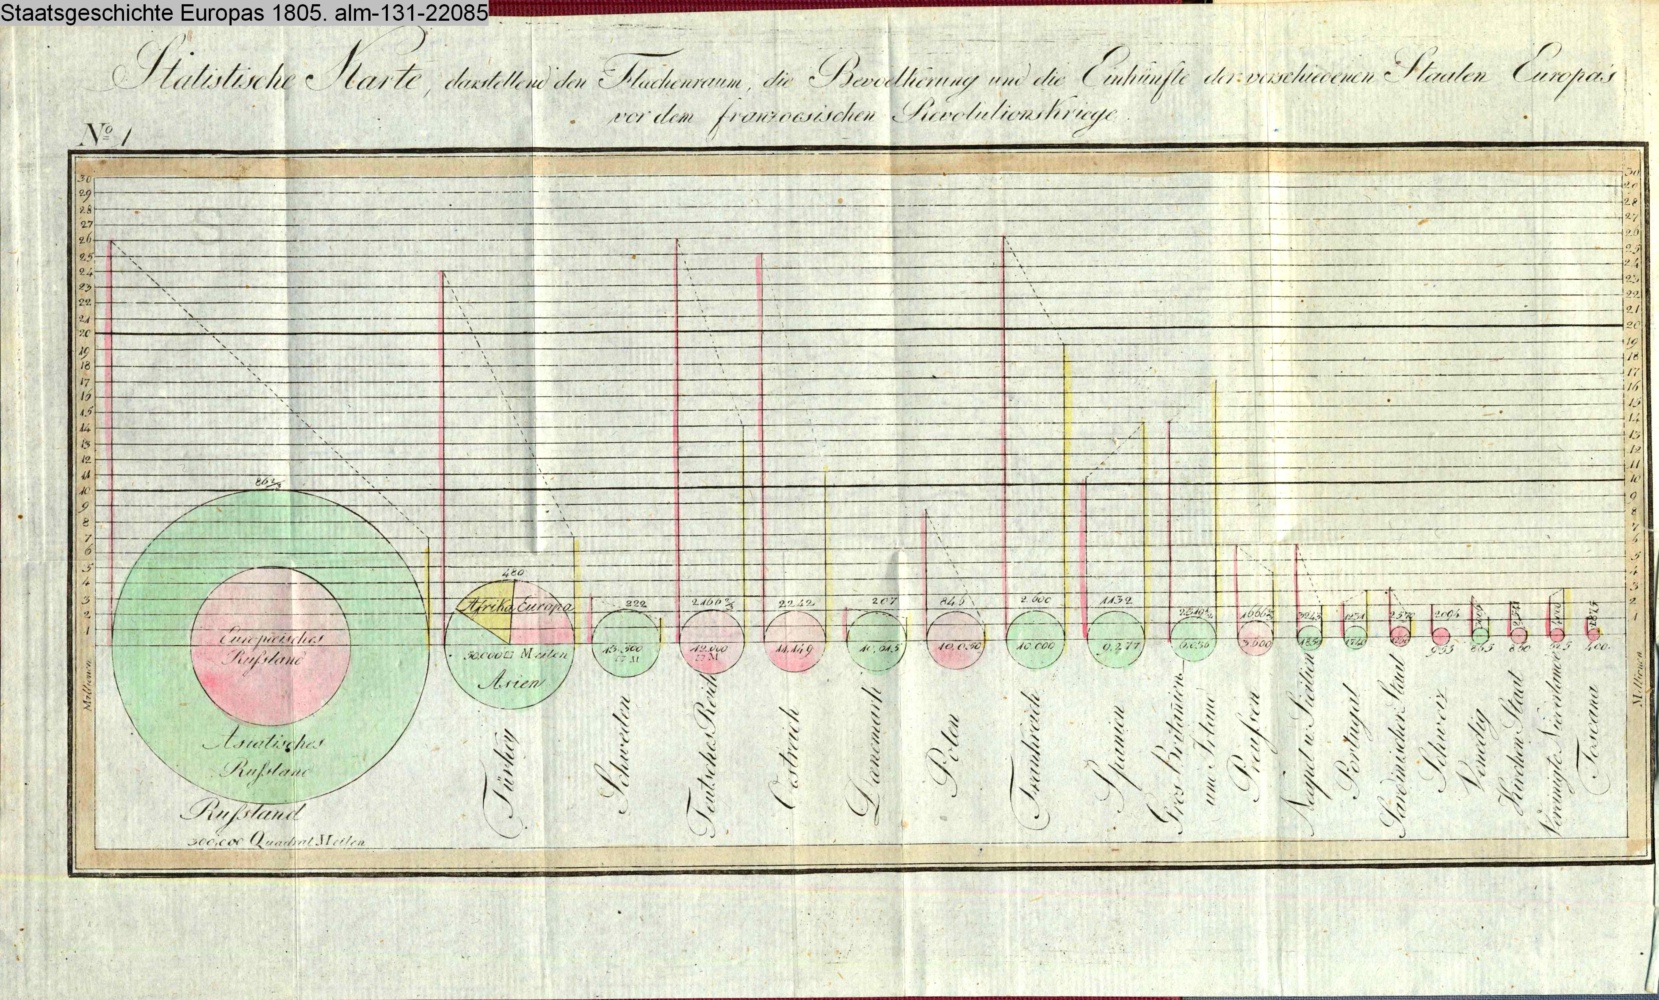 Staatsgeschichte Europas 1805. alm-131-22085
Statistische Karte, darstellend den Flächenraum, die Bevoelkerung und die Einkünfte der verschiedenen Staaten Europa's
vor dem franzoesischen Revolutionskriege.
No. 1
30 30
29 29
28 28
27 27
26 26
25 25
24 24
23 23
22 22
21 21
20 20
19 19
18 18
17 17
16 16
15 15
14 14
13 13
12 12
11 11
10 10
9 9
8 8
7 7
6 6
5 5
4 4
3 3
2 2
1 1
Millionen
Millionen
Europaeisches
Rußland
Asiatisches
Rußland
Rußland
300,000 Quadrat Meilen
480
Afrika Europa
50.000 Meilen
Asien
Türkey
222
M
Schweden
12.000
M
Teutsches Reich
2242
11.149
Oestreich
207
10.015
Daenemark
845
10.030
Polen
2600
10.000
Frankreich
1132
9.277
Spanien
Gros Britanien
und Irland
3.600
Preußen
Neapel u. Sicilien
Portugal
Sardinischer Staat
Schweiz
Venedig
Kirchen Staat
Vereinigte Niederlande
Toscana